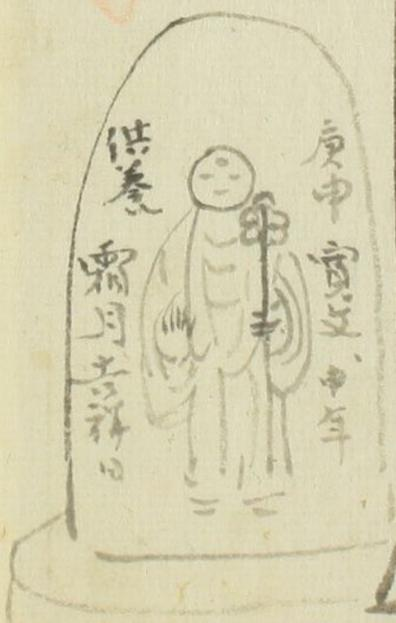 庚申 寛文八申年
供養 霜月吉祥日